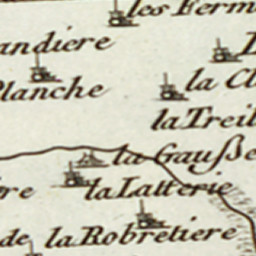 les Ferm
andiere
la Cl
Planche
la Treil
la Gauße
re
la Latterie
de
la Robretiere